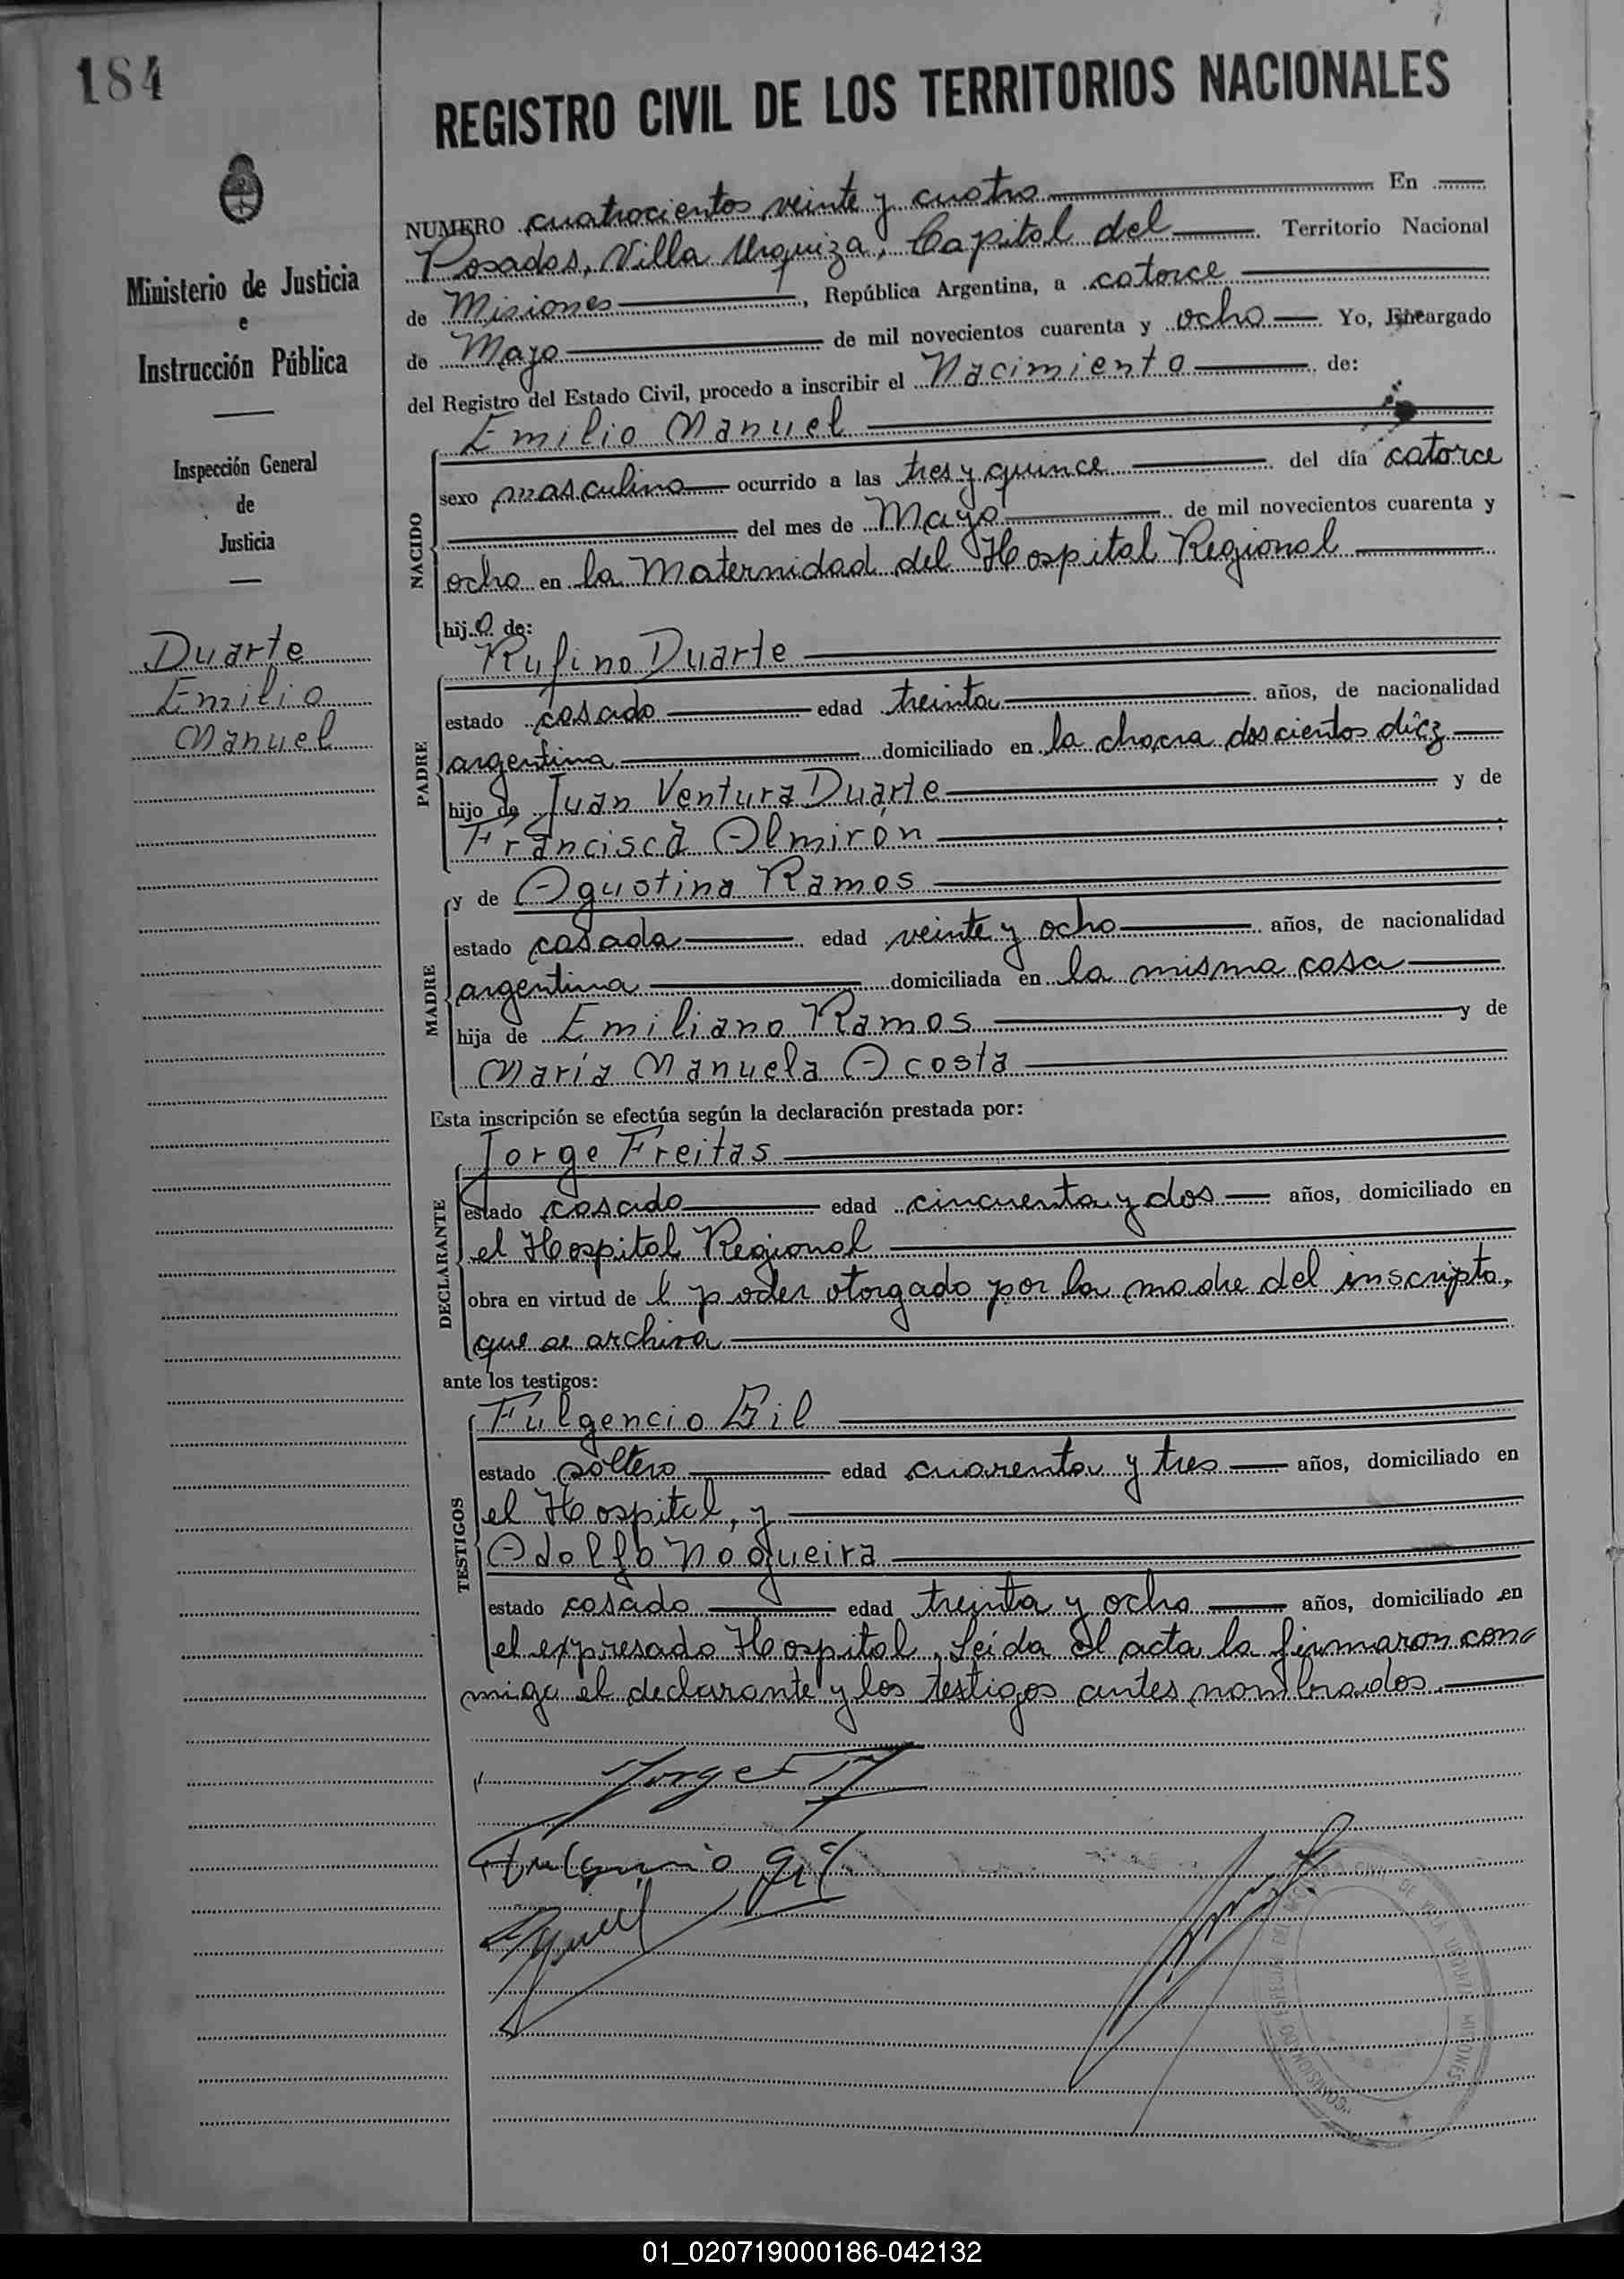 184
REGISTRO CIVIL DE LOS TERRITORIOS NACIONALES
Ministerio de Justicia
e
Instrucción Pública
Inspección General
de
Justicia
Duarte
Emilio
Manuel
NUMERO cuatrocientos veinte y cuatro En
Posadas, Villa Urquiza, Capital del Territorio Nacional
de Misiones, República Argentina, a catorce
de Mayo de mil novecientos cuarenta y ocho Yo, Encargado
del Registro del Estado Civil, procedo a inscribir el Nacimiento de:
NACIDO
Emilio Manuel
sexo masculino ocurrido a las tres y quince del día catorce
del mes de Mayo de mil novecientos cuarenta y
ocho en la Maternidad del Hospital Regional
hijo de:
PADRE
Rufino Duarte
estado casado edad treinta años, de nacionalidad
argentina domiciliado en la chacra doscientos diez
hijo de Juan Ventura Duarte y de
Francisca Almirón
MADRE
y de Agustina Ramos
estado casada edad veinte y ocho años, de nacionalidad
argentina domiciliada en la misma casa
hija de Emiliano Ramos y de
María Manuela Acosta
Esta inscripción se efectúa según la declaración prestada por:
DECLARANTE
Jorge Freitas
estado casado edad cincuenta y dos años, domiciliado en
el Hospital Regional
obra en virtud del poder otorgado por la madre del inscripto,
que se archiva
ante los testigos:
TESTIGOS
Fulgencio Gil
estado soltero edad cuarenta y tres años, domiciliado en
el Hospital, y
Adolfo Nogueira
estado casado edad treinta y ocho años, domiciliado en
el expresado Hospital. Leída el acta la firmaron con
migo el declarante y los testigos antes nombrados.
Jorge F
Fulgencio Gil
COMISIONADO ESPECIAL DEL REGISTRO CIVIL DE VILLA URQUIZA MISIONES
01_020719000186-042132